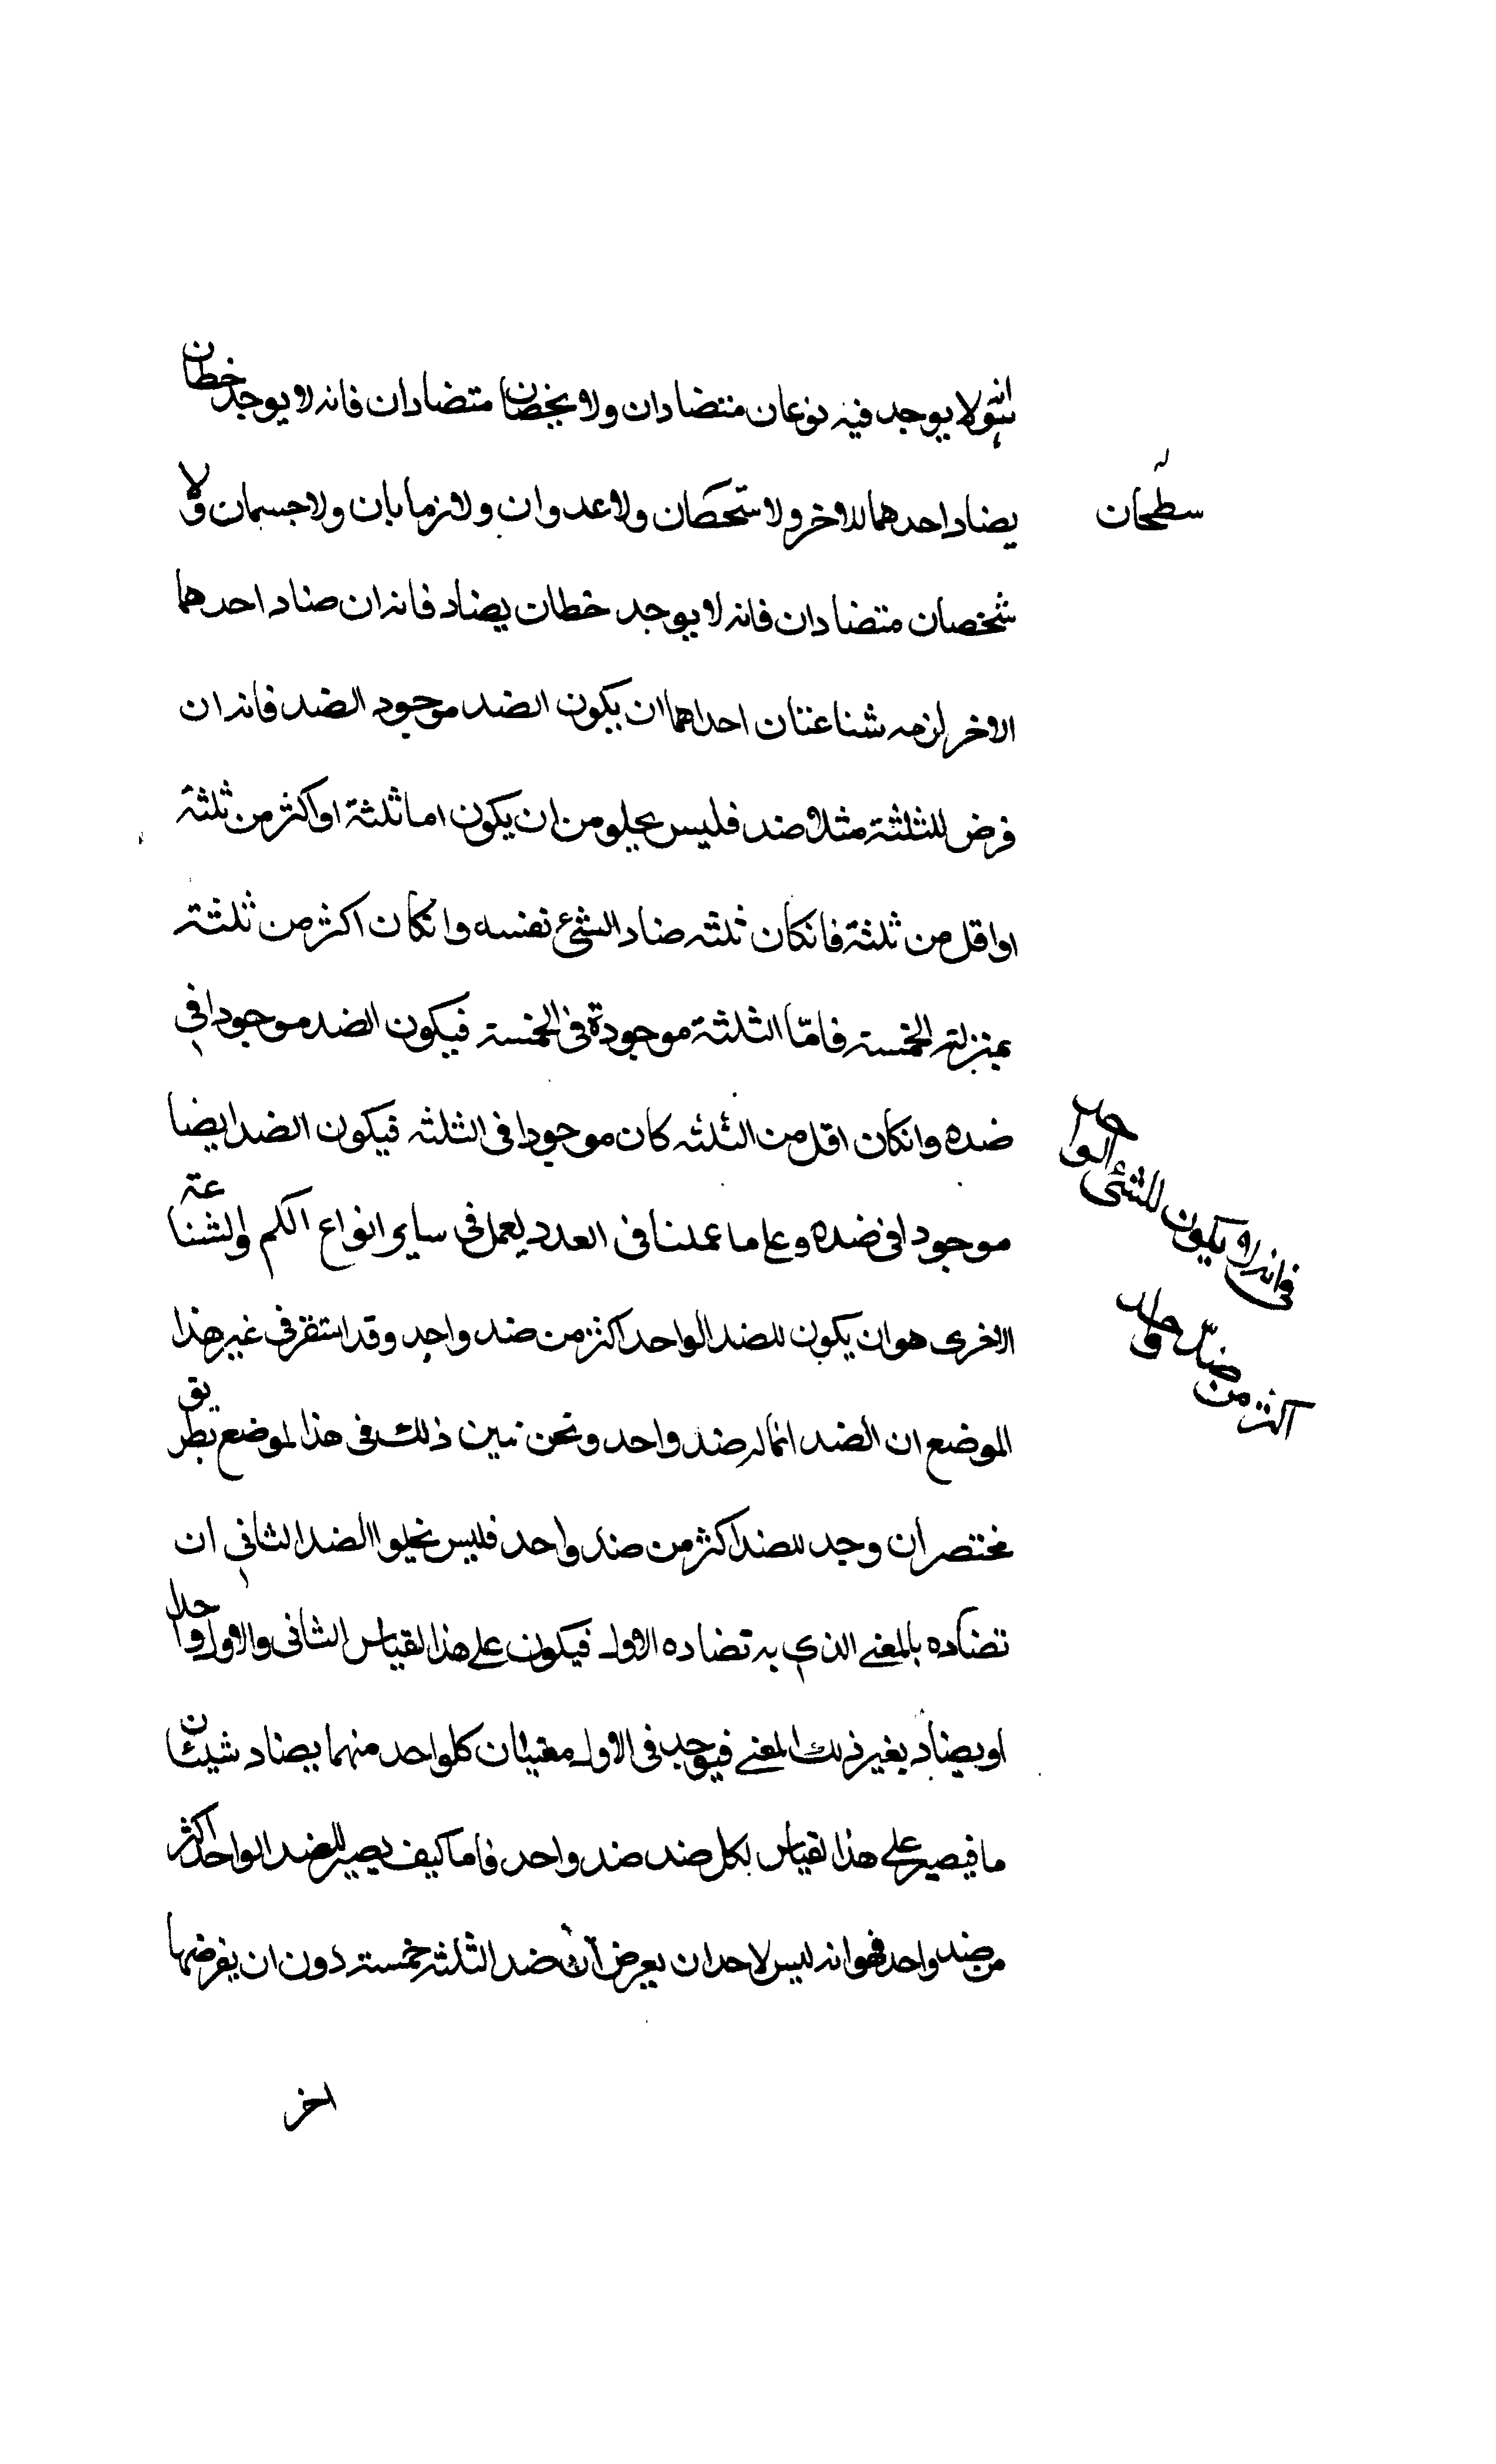 ولا يوجد فيه نوعان متضادان ولا شخصان متضادان فانه لا يوجد خطان
يضاد احدهما للاخر ولا ستحكان ولا عددان ولا زمانان ولا جسمان ولا
سطحان
شخصان متضادان فانه لا يوجد خطان يضاد فانه ان ضاد احدهما
الاخر لزمه شناعتان احداهما ان يكون الضد موجود الضد فانه ان
فرض للثلثة مثلا ضد فليس يخلو من ان يكون اما ثلثة او اكثر من ثلثة
او اقل من ثلثة فانكان ثلثه ضاد الشيء نفسه وانكان اكثر من ثلثة
بمنزلة الخمسة فامّا الثلثة موجودة في الخمسة فيكون الضد موجودا في
ضده وانكان اقل من الثلثه كان موجودا في الثلثه فيكون الضد ايضا
موجودا في ضده وعلى ما عملنا في العدد يعمل في ساير انواع الكم والشناعة
الاخرى هو ان يكون للضد الواحد اكثر من ضد واحد وقد استقر في غير هذا
فانه لا يكون للشئ الواحد
اكثر من ضدّ واحد
الموضع ان الضد انما له ضد واحد ونحن نبين ذلك في هذا لموضع بطريق
مختصر ان وجد للضد اكثر من ضد واحد فليس يخلوا الضد الثاني ان
تضاده بالمعنى الذي به تضاده الاول فيكون على هذا لقياس الثاني والاول واحدا
او يضاد بغير ذلك المعنى فيوجد في الاول معنيان كلواحد منهما يضاد شيئان
ما فيصير على هذا لقياس لكل ضد ضد واحد فاما كيف يصير للضد الواحد اكثر
من ضد واحد فهو انه ليس لاحد ان يعرض ان ضد الثلثة خمسة دون ان يفرضها
اخر